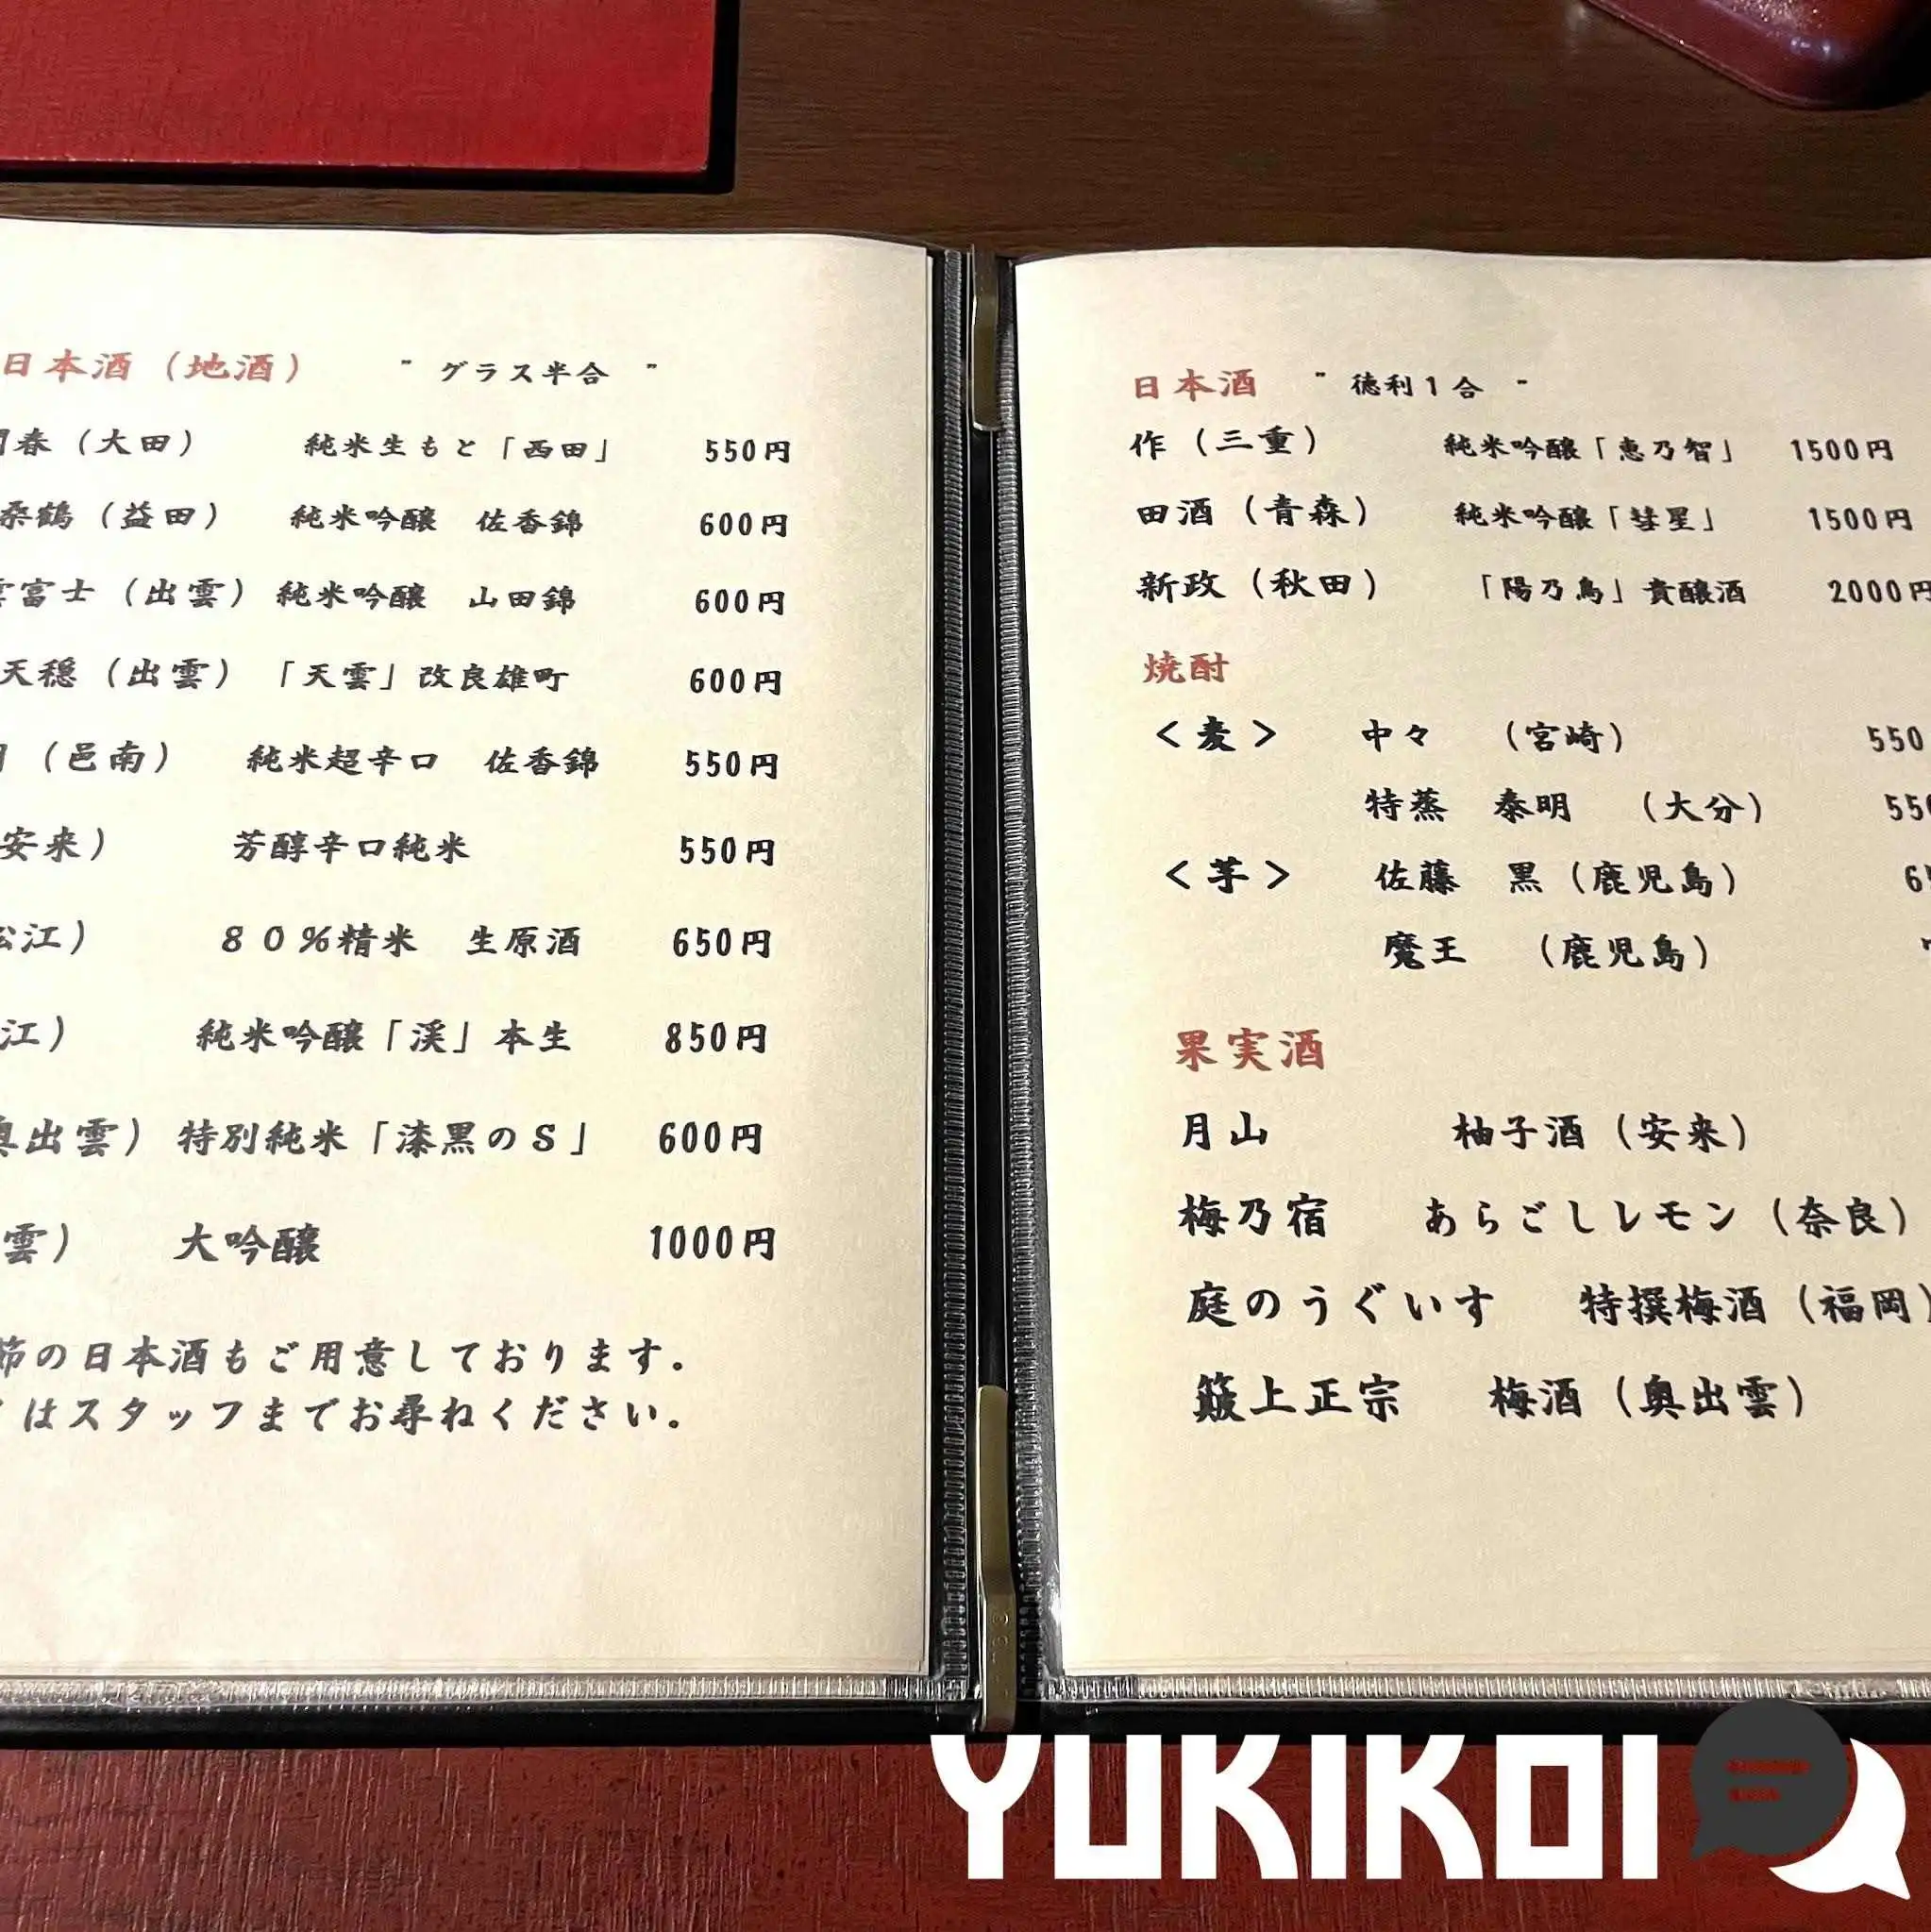 日本酒（地酒） " グラス半合 "
春（大田） 純米生もと「西田」 550円
桑鶴（益田） 純米吟醸 佐香錦 600円
富士（出雲） 純米吟醸 山田錦 600円
天穏（出雲） 「天雲」改良雄町 600円
（邑南） 純米超辛口 佐香錦 550円
安来） 芳醇辛口純米 550円
江） 80%精米 生原酒 650円
江） 純米吟醸「渓」本生 850円
出雲） 特別純米「漆黒のS」 600円
雲） 大吟醸 1000円
節の日本酒もご用意しております。
はスタッフまでお尋ねください。
日本酒 " 徳利1合 "
作（三重） 純米吟醸「恵乃智」 1500円
田酒（青森） 純米吟醸「彗星」 1500円
新政（秋田） 「陽乃鳥」貴醸酒 2000円
焼酎
＜麦＞ 中々 （宮崎） 550
特蒸 泰明 （大分） 550
＜芋＞ 佐藤 黒（鹿児島）
魔王 （鹿児島）
果実酒
月山 柚子酒（安来）
梅乃宿 あらごしレモン（奈良）
庭のうぐいす 特撰梅酒（福岡）
簸上正宗 梅酒（奥出雲）
YUKIKOI